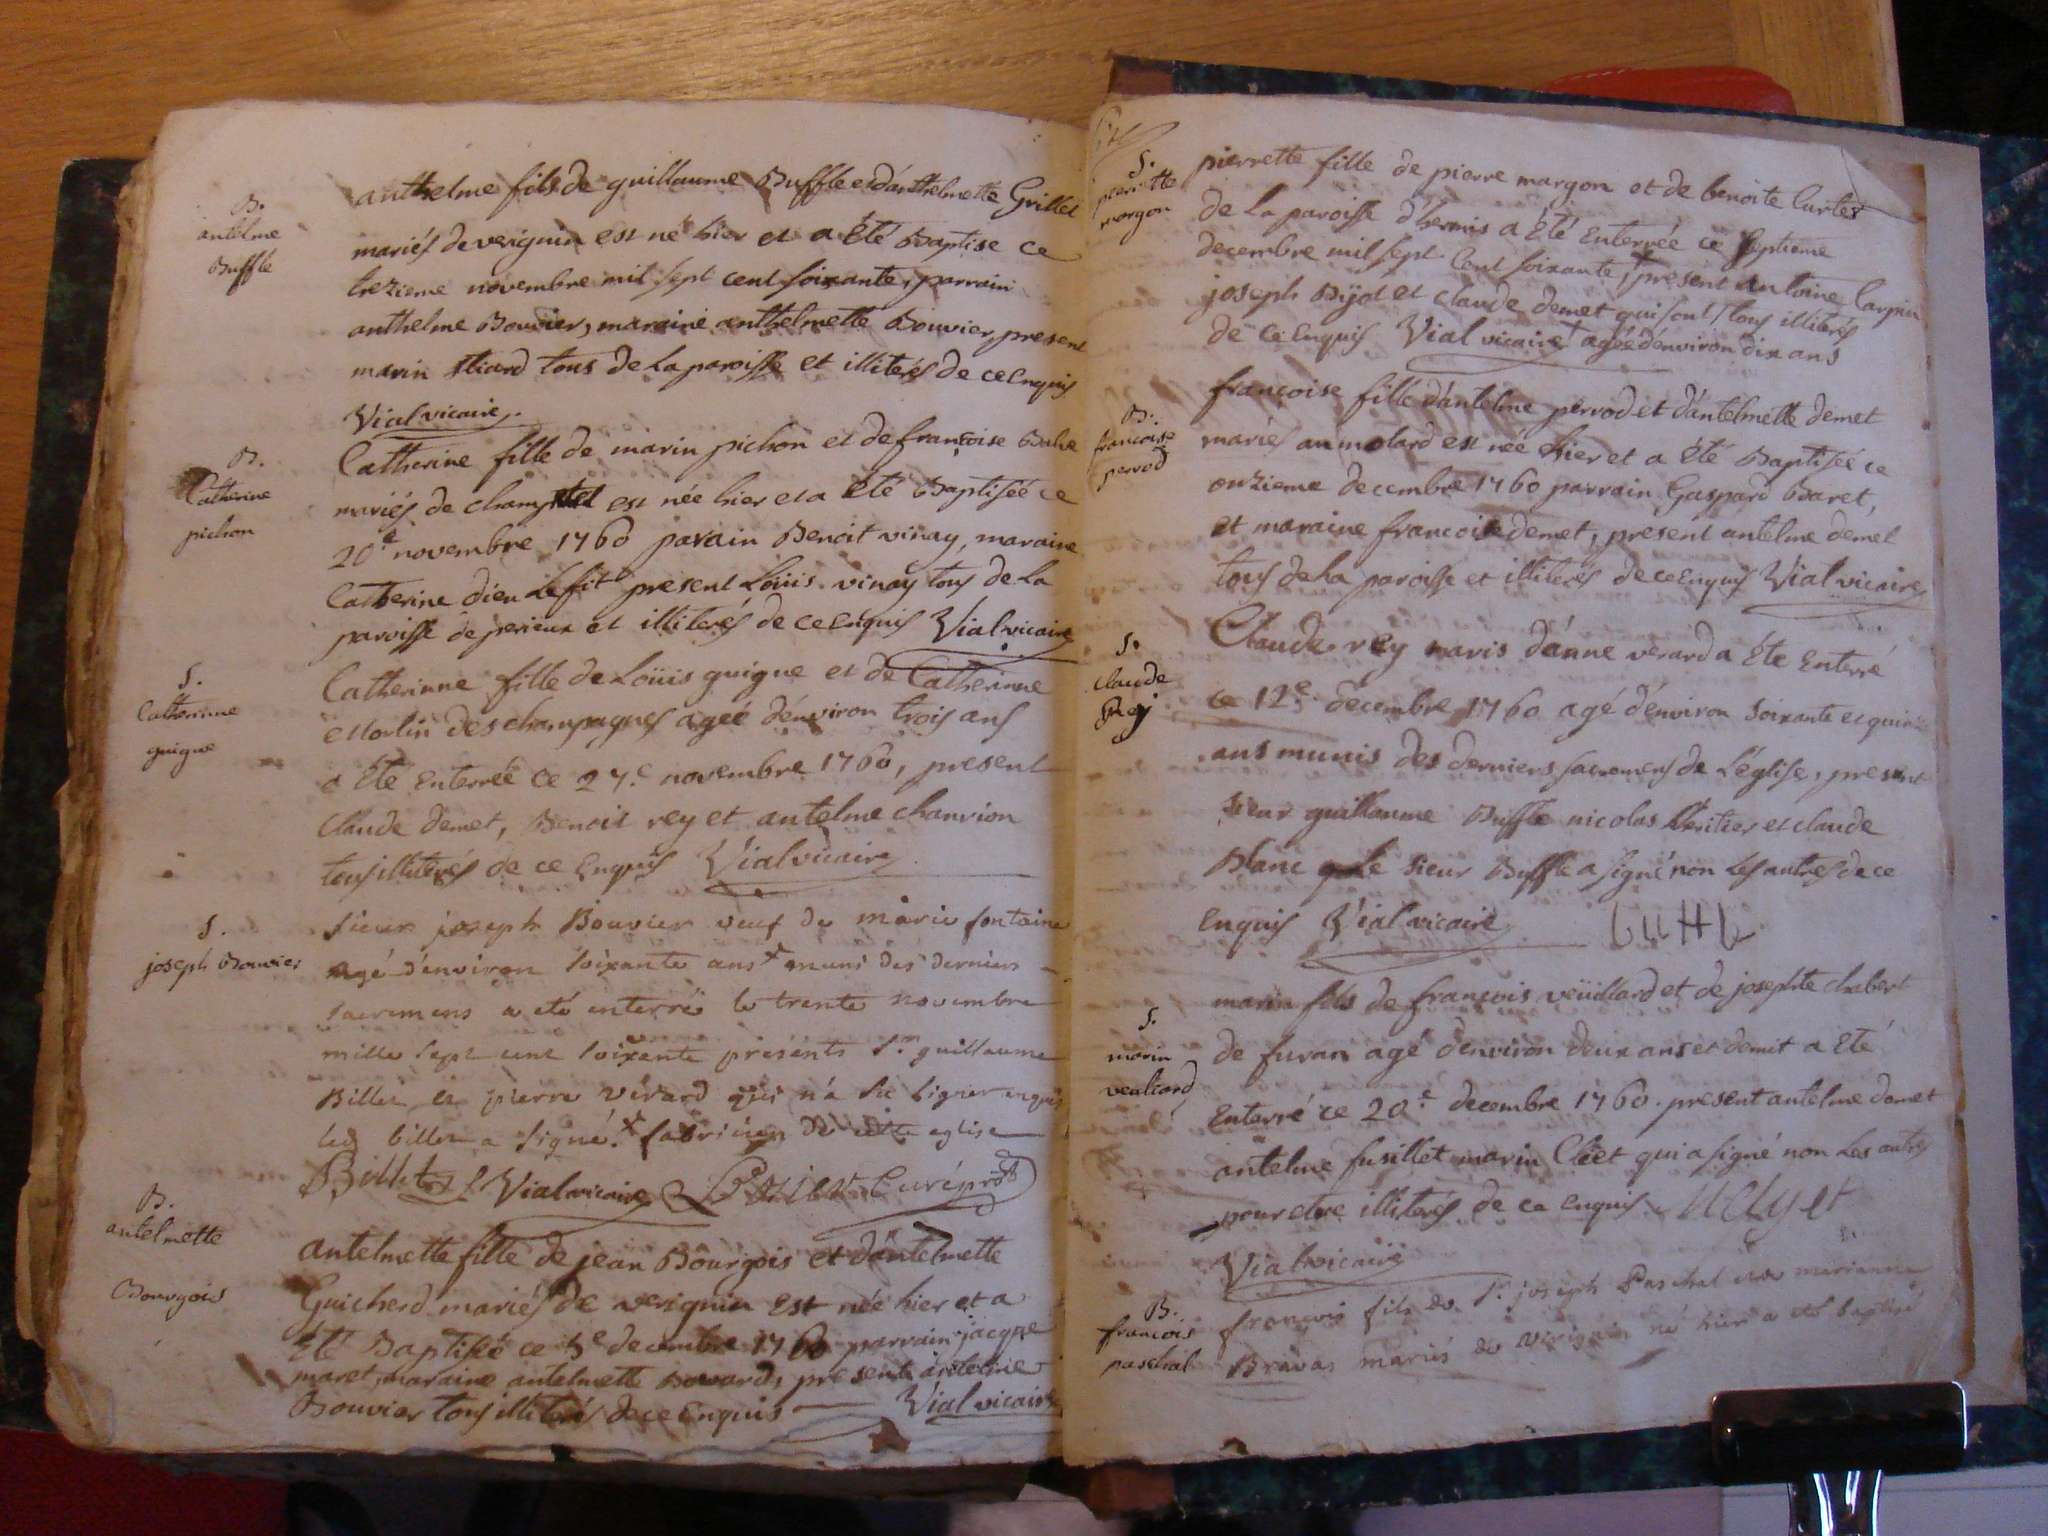 B.
antelme
Buffle
anthelme fils de guillaume Buffle et d'anthelmette Grillet
mariés de verignin est né hier et a Eté Baptise ce
trezieme novembre mil sept cent soixante, parrain
anthelme Bouvier, maraine anthelmette Bouvier, present
marin tous de la paroisse et illiterés de ce Enquis
Vial vicaire.
B.
Catherine
pichon
Catherine fille de marin pichon et de françoise
mariés de est née hier et a Eté Baptisée ce
20e novembre 1760 parain Benoit vinay, maraine
Catherine dieu Lefit present Loüis vinay tous de la
paroisse de perieux et illiterés de ce Enquis Vial vicaire
S.
Catherinne
guigue
Catherinne fille de Loüis guigue et de Catherinne
Morlin des champagnes ageé d'environ trois ans
a Eté Enterreé ce 27e novembre 1760, present
Claude demet, Benoit rey et antelme chanvion
tous illiterés de ce Enquis Vial vicaire
S.
joseph Bouvier
sieur joseph Bouvier veuf de marie fontaine
agé d'environ soixante ans + muni des derniers
sacremens a eté enterré le trente novembre
mille sept cent soixante présents Sr guillaume
Billet et pierre vérard qui n'a su signer enquis
led billet a signé. + fabricien de cette eglise
Billet Vial vicaire Curé
B.
antelmette
Bourgois
antelmette fille de jean Bourgois et d'antelmette
Guicherd mariés de verignin Est née hier et a
Eté Baptisée ce 5e decembre 1760 parrain jacque
maret, maraine antelmette Bovard, present antelme
Bouvier tous illiterés de ce Enquis Vial vicaire
S.
pierrette
morgon
pierrette fille de pierre margon et de benoite Curtet
de la paroisse d'hermis a Eté Enterrée ce septieme
decembre mil sept Cent soixante, + present antoine Carpin
joseph Bijot et Claude demet qui sont tous illiterés
de ce Enquis Vial vicaire + agée d'environ dix ans
B.
francoise
perrod
francoise fille d'antelme perrod et d'antelmette demet
mariés au molard est née hier et a Eté Baptiseé ce
onzieme decembre 1760 parrain Gaspard Baret,
et maraine francoise demet, present antelme demet
tous de la paroisse et illiterés de ce Enquis Vial vicaire
S.
Claude
Rey
Claude rey maris d'anne verard a Ete Enterré
ce 12e decembre 1760 agé d'environ soixante et quinze
ans munis des derniers sacremens de L'église, present
sieur guillaume Buffle nicolas Héritier et claude
Blanc Le sieur Buffle a signé non Les autres de ce
Enquis Vial vicaire
S.
marin
veulliard
marin fils de françois veüillard et de josephte chabert
de furan agé d'environ deux ans et demit a Eté
Enterré ce 20e decembre 1760. present antelme demet
antelme fusillet marin Cleet qui a signé non Les autres
pour etre illiterés de ce Enquis
Vial vicaire
B.
francois
paschal
francois fils de Sr joseph Paschal et de marianne
Bravas mariés de verignin né hier a eté baptisé